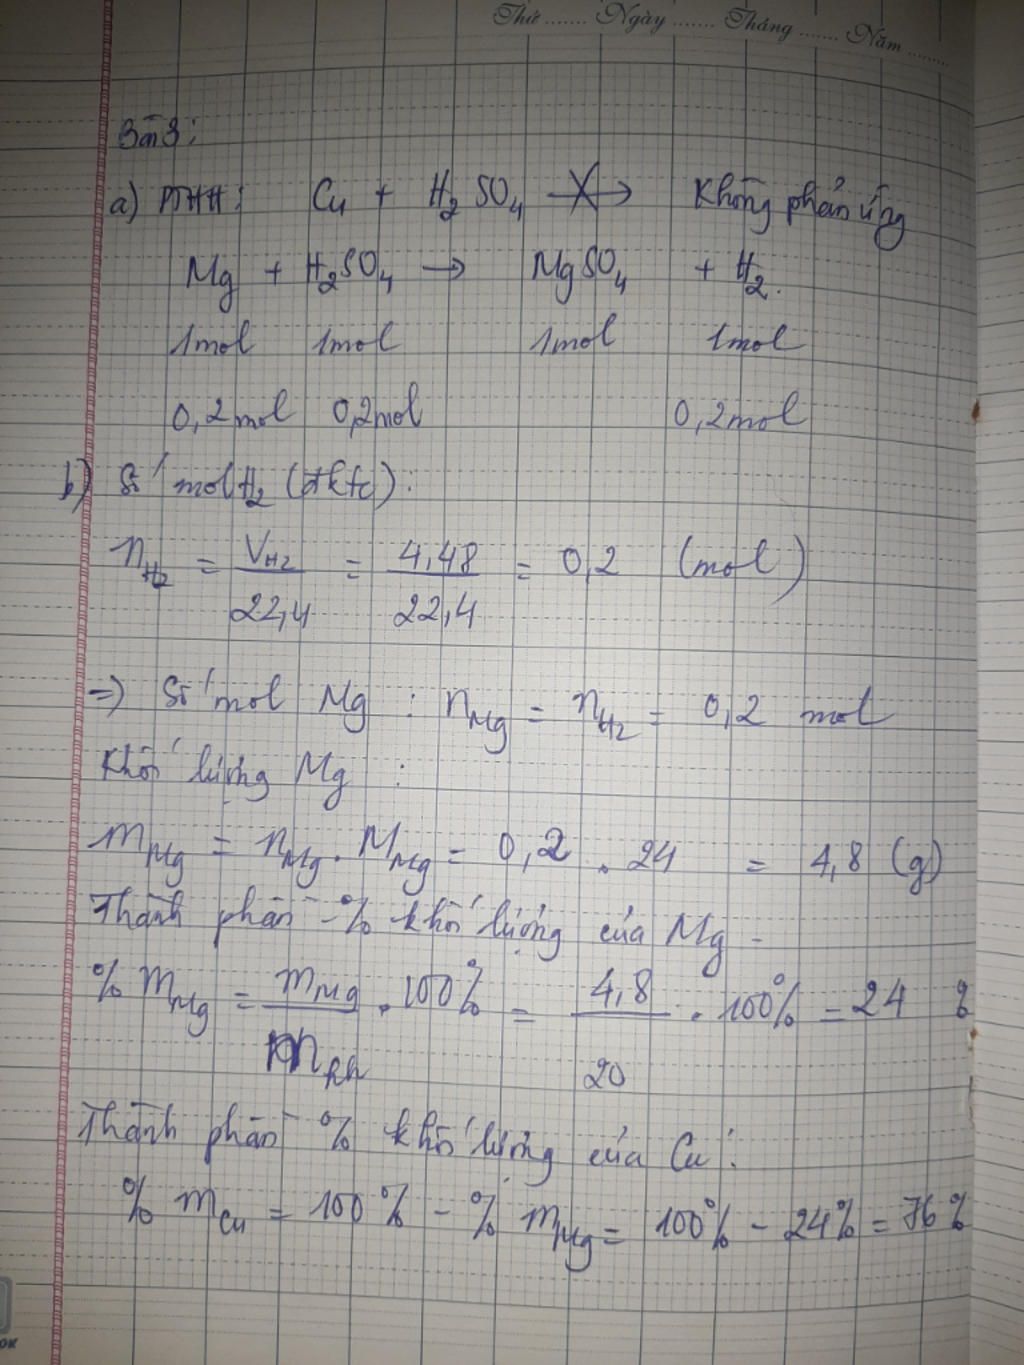 Thứ ....... Ngày ....... Tháng ....... Năm ........
Bài 3:
a) PTHH: Cu + H₂SO₄ -X-> Không phản ứng
Mg + H₂SO₄ → MgSO₄ + H₂.
1mol 1mol 1mol 1mol
0,2mol 0,2mol 0,2mol
b) Số mol H₂ (đktc):
n_H₂ = V_H₂ / 22,4 = 4,48 / 22,4 = 0,2 (mol)
=> Số mol Mg : n_Mg = n_H₂ = 0,2 mol
Khối lượng Mg :
m_Mg = n_Mg . M_Mg = 0,2 . 24 = 4,8 (g)
Thành phần % khối lượng của Mg -
% m_Mg = m_Mg / m_hh . 100% = 4,8 / 20 . 100% = 24 %
Thành phần % khối lượng của Cu:
% m_Cu = 100% - % m_Mg = 100% - 24% = 76%
OK